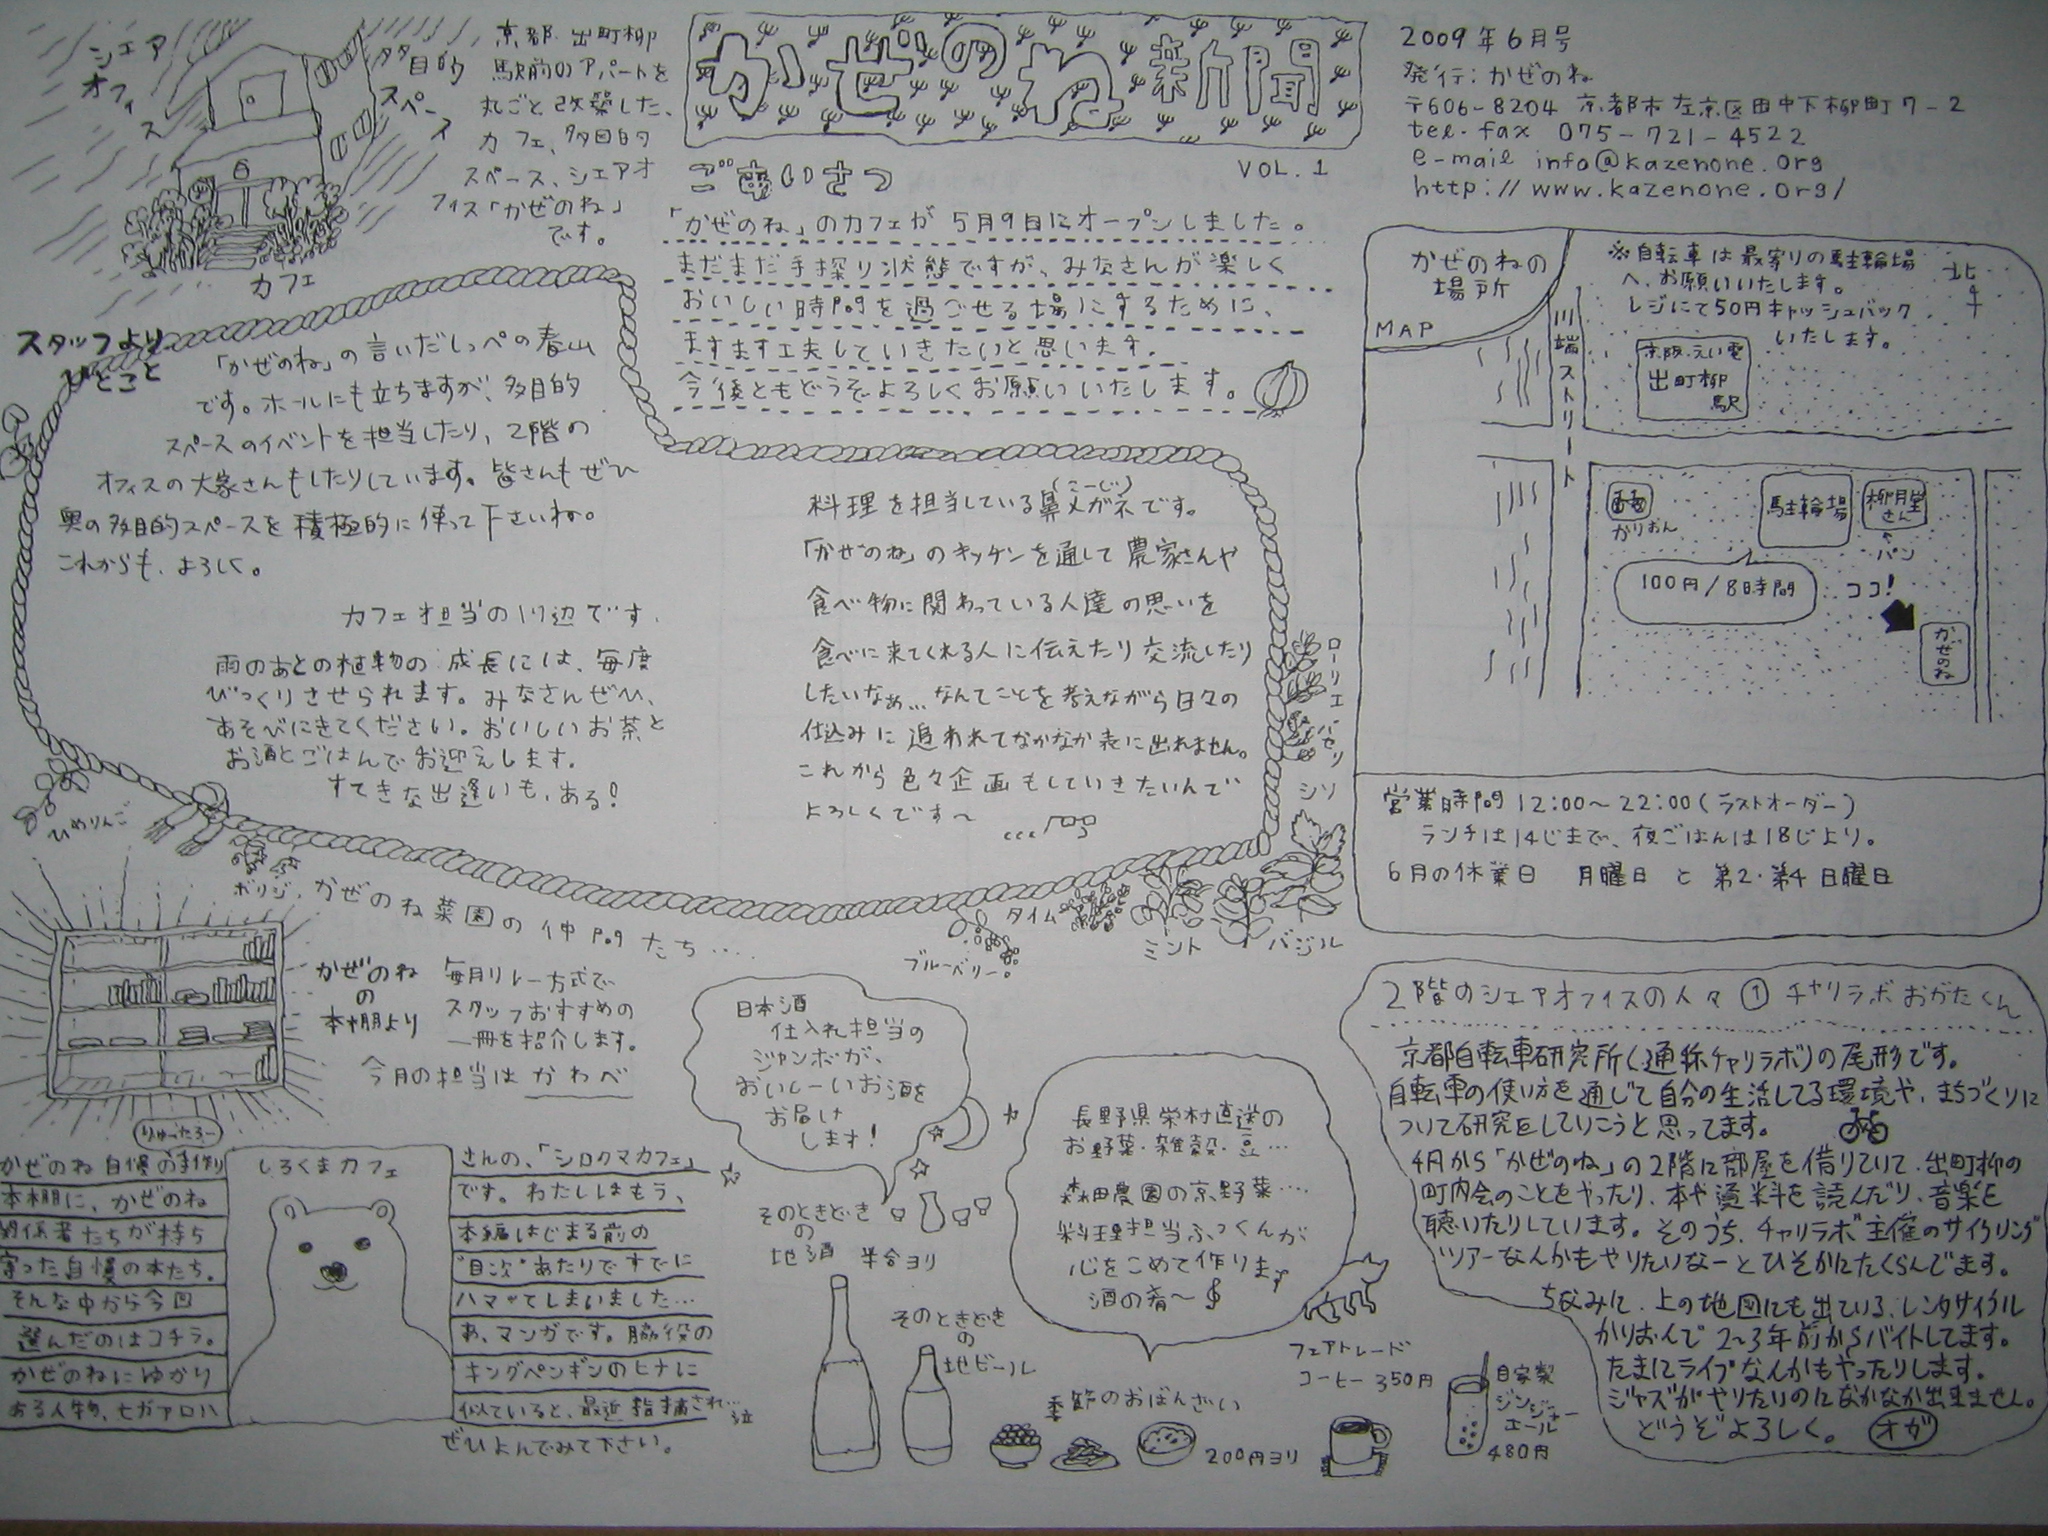 シェア
オフィス
多目的
スペース
カフェ
京都・出町柳
駅前のアパートを
丸ごと改築した、
カフェ、多目的
スペース、シェアオ
フィス「かぜのね」
です。
かぜのね新聞
VOL.1
2009年6月号
発行:かぜのね
〒606-8204 京都市左京区田中下柳町7-2
tel・fax 075-721-4522
e-mail info@kazenone.org
http://www.kazenone.org/
ごあいさつ
「かぜのね」のカフェが5月9日にオープンしました。
まだまだ手探り状態ですが、みなさんが楽しく
おいしい時間を過ごせる場にするために、
ますます工夫していきたいと思います。
今後ともどうぞよろしくお願いいたします。
かぜのねの
場所
MAP
※自転車は最寄りの駐輪場
へ、お願いいたします。
レジにて50円キャッシュバック
いたします。
北
川端ストリート
京阪・えい電
出町柳
駅
かりおん
駐輪場
柳月堂
さん
パン
100円/8時間
ココ!
かぜのね
営業時間 12:00〜22:00(ラストオーダー)
ランチは14じまで、夜ごはんは18じより。
6月の休業日 月曜日 と 第2・第4日曜日
スタッフより
ひとこと
「かぜのね」の言いだしっぺの春山
です。ホールにも立ちますが、多目的
スペースのイベントを担当したり、2階の
オフィスの大家さんもしたりしています。皆さんもぜひ
奥の多目的スペースを積極的に使って下さいね。
これからも、よろしく。
カフェ担当の川辺です。
雨のあとの植物の成長には、毎度
びっくりさせられます。みなさんぜひ、
あそびにきてください。おいしいお茶と
お酒とごはんでお迎えします。
すてきな出逢いも、ある!
料理を担当している鼻メガネ(こーじ)です。
「かぜのね」のキッチンを通して農家さんや
食べ物に関わっている人達の思いを
食べに来てくれる人に伝えたり交流したり
したいなぁ…なんてことを考えながら日々の
仕込みに追われてなかなか表に出れません。
これから色々企画もしていきたいんで
よろしくです〜
ローリエ
パセリ
シソ
バジル
ミント
タイム
ブルーベリー
ひめりんご
ボリジ
かぜのね菜園の仲間たち…
かぜのね
の
本棚より
毎月リレー方式で
スタッフおすすめの
一冊を紹介します。
今月の担当は かわべ
りゅったろー
かぜのね自慢の手作り
本棚に、かぜのね
関係者たちが持ち
寄った自慢の本たち。
そんな中から今回
選んだのはコチラ。
かぜのねにゆかり
ある人物、ヒガアロハ
しろくまカフェ
さんの、「シロクマカフェ」
です。わたしはもう、
本編はじまる前の
"目次"あたりですでに
ハマッてしまいました…
あ、マンガです。脇役の
キングペンギンのヒナに
似ていると、最近指摘され…泣
ぜひよんでみて下さい。
日本酒
仕入れ担当の
ジャンボが、
おいしーいお酒を
お届け
します!
そのときどき
の
地酒 半合ヨリ
そのときどき
の
地ビール
長野県栄村直送の
お野菜・雑穀・豆…
森田農園の京野菜…
料理担当ふっくんが
心をこめて作ります
酒の肴〜
季節のおばんざい
200円ヨリ
フェアトレード
コーヒー 350円
自家製
ジンジャー
エール
480円
2階のシェアオフィスの人々 ① チャリラボ おがたくん
京都自転車研究所(通称チャリラボ)の尾形です。
自転車の使い方を通じて自分の生活してる環境や、まちづくりに
ついて研究をしていこうと思ってます。
4月から「かぜのね」の2階に部屋を借りていて、出町柳の
町内会のことをやったり、本や資料を読んだり、音楽を
聴いたりしています。そのうち、チャリラボ主催のサイクリング
ツアーなんかもやりたいなーとひそかにたくらんでます。
ちなみに、上の地図にも出ている、レンタサイクル
かりおんで 2〜3年前からバイトしてます。
たまにライブなんかもやったりします。
ジャズがやりたいのになかなか出来ません。
どうぞよろしく。 オガ